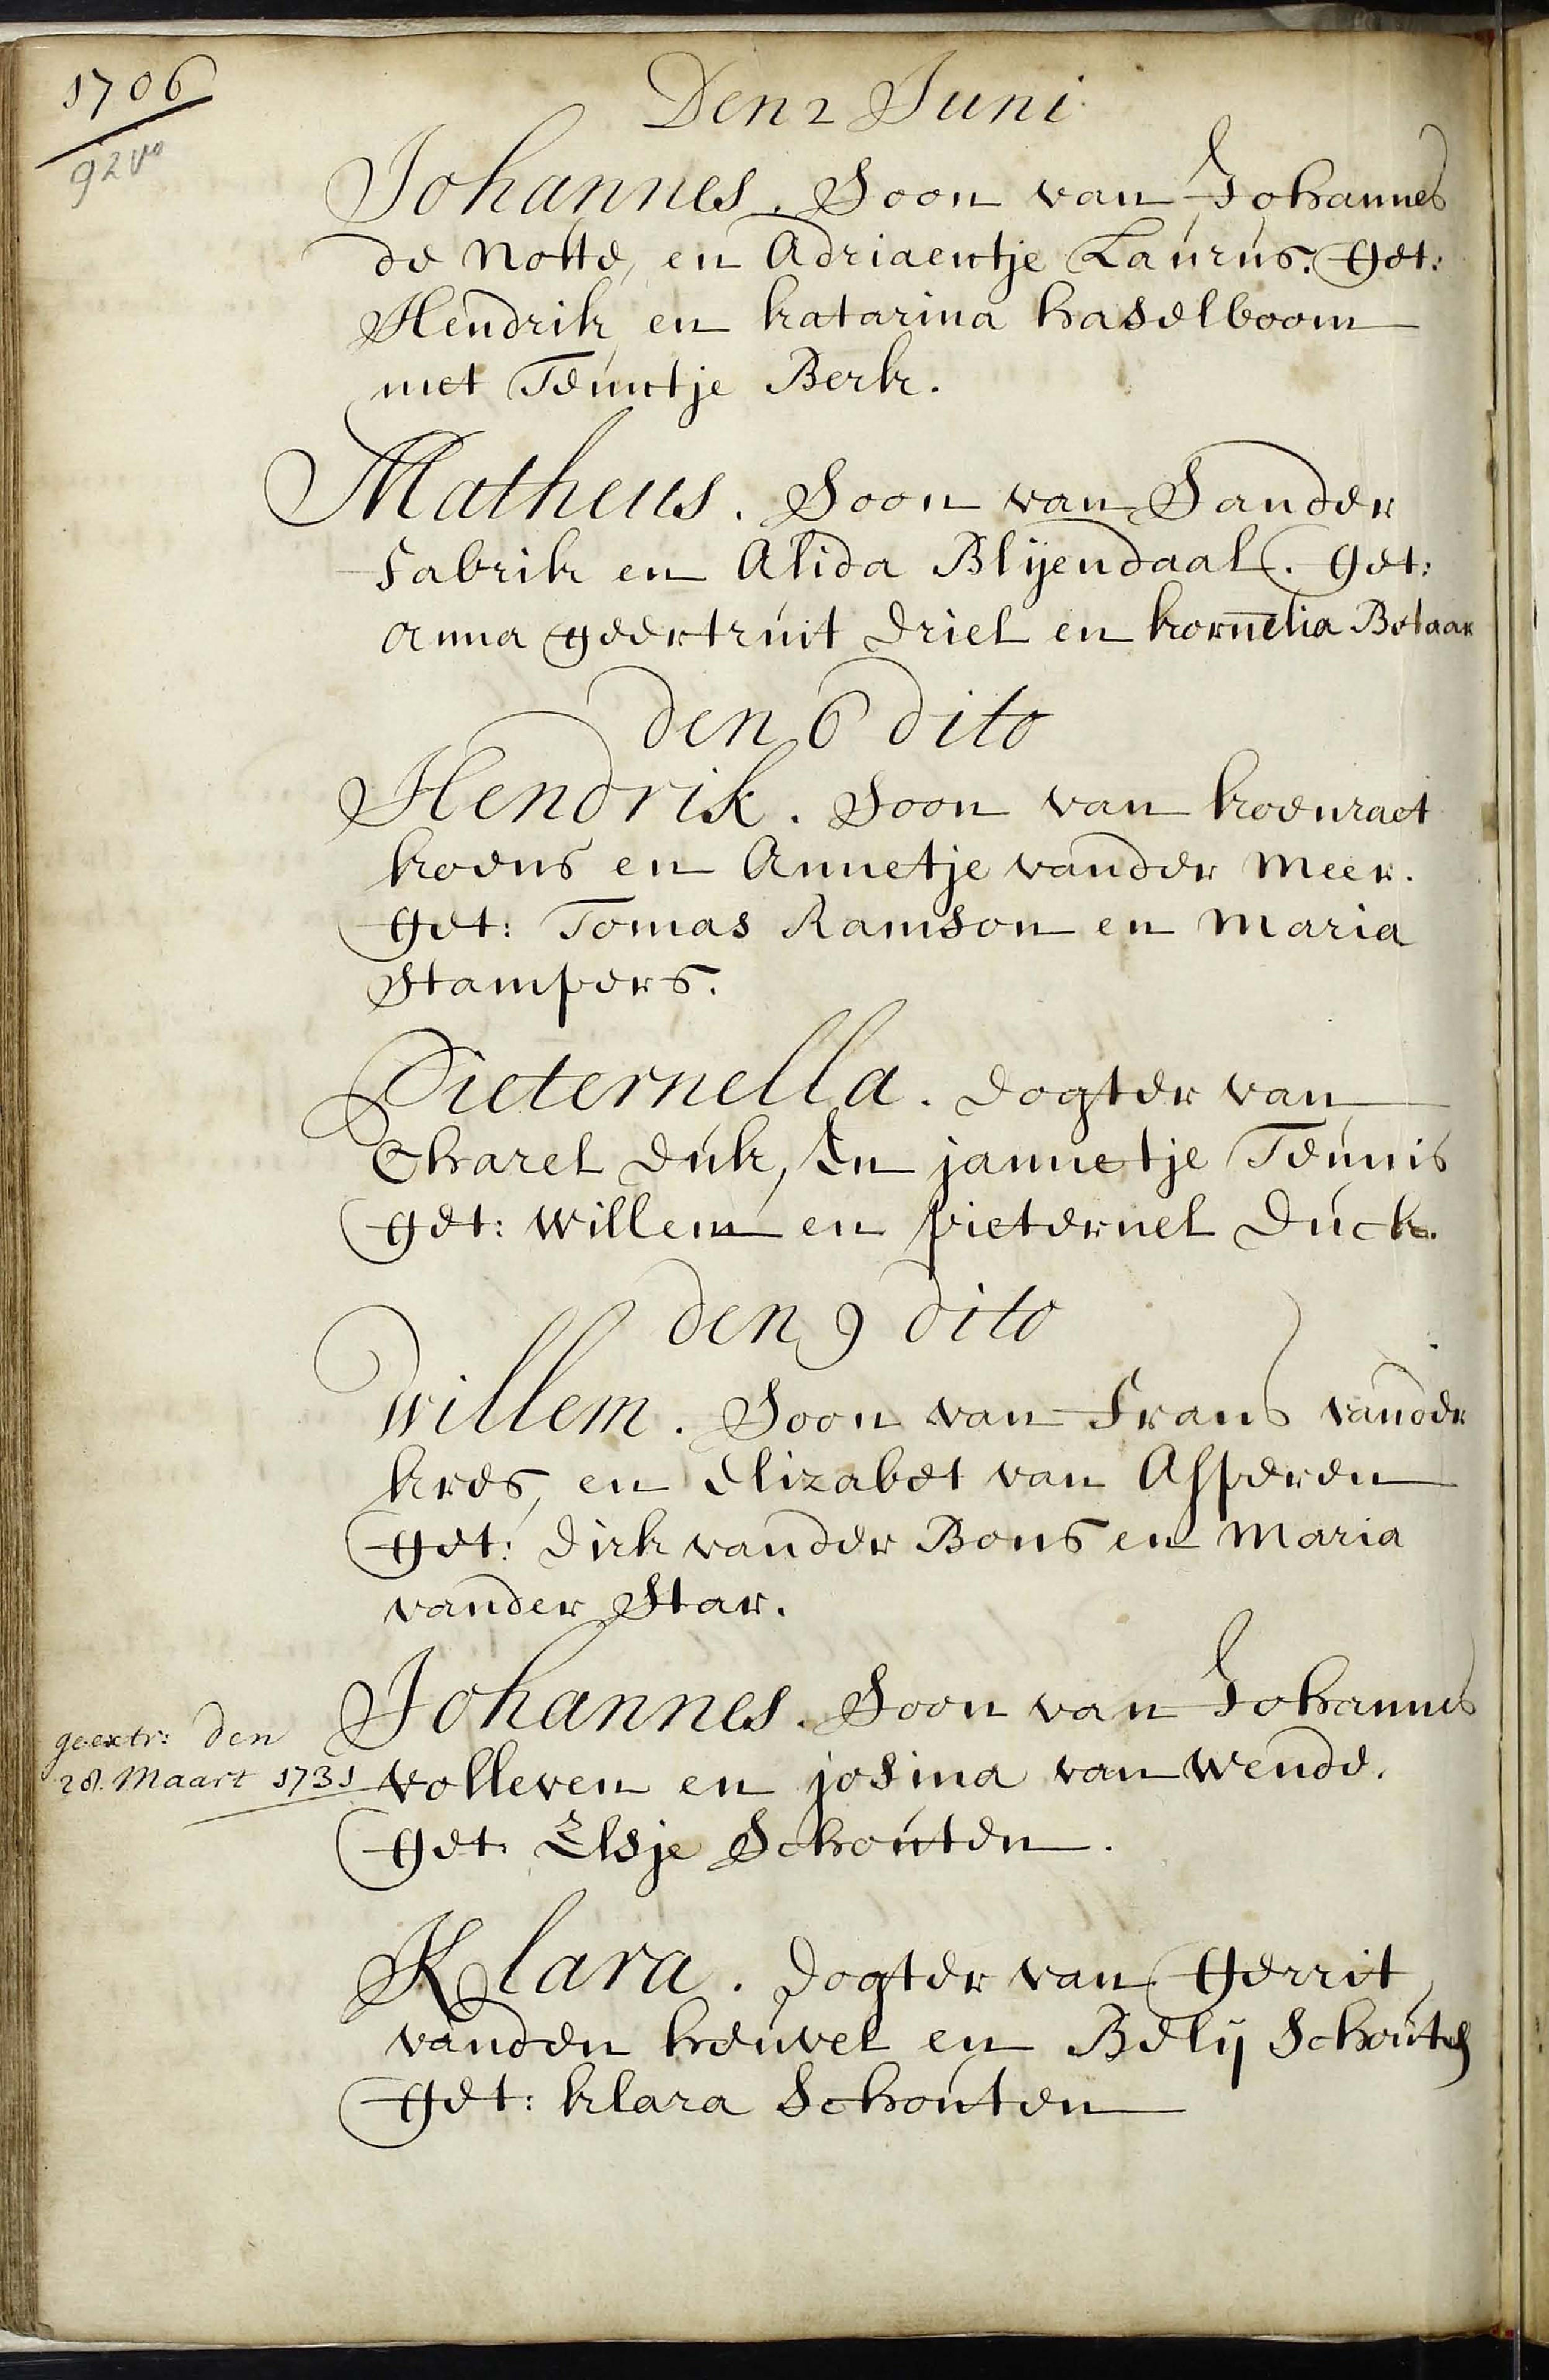 1706
92vo
Den 2 Juni
Johannes. Soon van Johannes
de Notte, en Adriaentje Laurus. get:
Hendrik en katarina haselboom
met Teuntje Berk.
Matheus. Soon van Sander
Fabrik en Alida Blijendaal. get:
Anna geertruit Driel en kornelia Bolaar
den 6 dito
Hendrik. Soon van koenraet
koens en Annetje vander Meer.
get: Tomas Ramson en Maria
Stampers.
Pieternella. Dogter van
Charel Duk, En jannetje Teunis
get: Willem en pieternel Duck.
den 9 dito
Willem. Soon van Frans vander
kres, en Elizabet van Asperen
get: Dirk vander Bons en Maria
vander Star.
Johannes. Soon van Johannes
geextr: den
28. Maart 1731
volleven en josina van Wende.
get. Elsje Schouten.
Klara. Dogter van Gerrit
vanden heuvel en Belij Schouten
get: klara Schouten